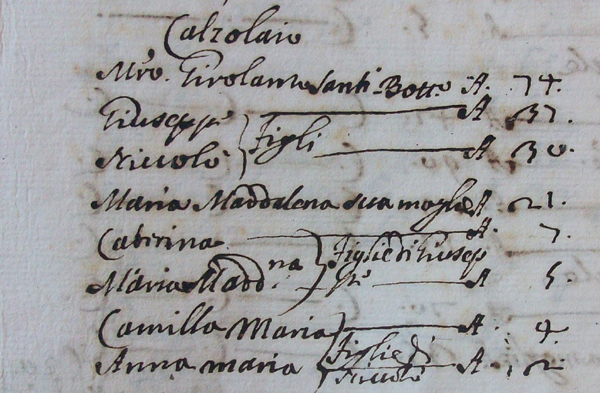 Calzolaio
Mro. Girolamo Santi Bott.e A. 74.
Giuseppe A 37.
Figli
Niccolò A 30.
Maria Maddalena sua moglie A. 21.
Caterina A. 7.
Figlie di Giusep
Maria Madd.na pe A 5.
Camilla Maria A. 4
Figlie di
Anna maria A 2.
Niccolò